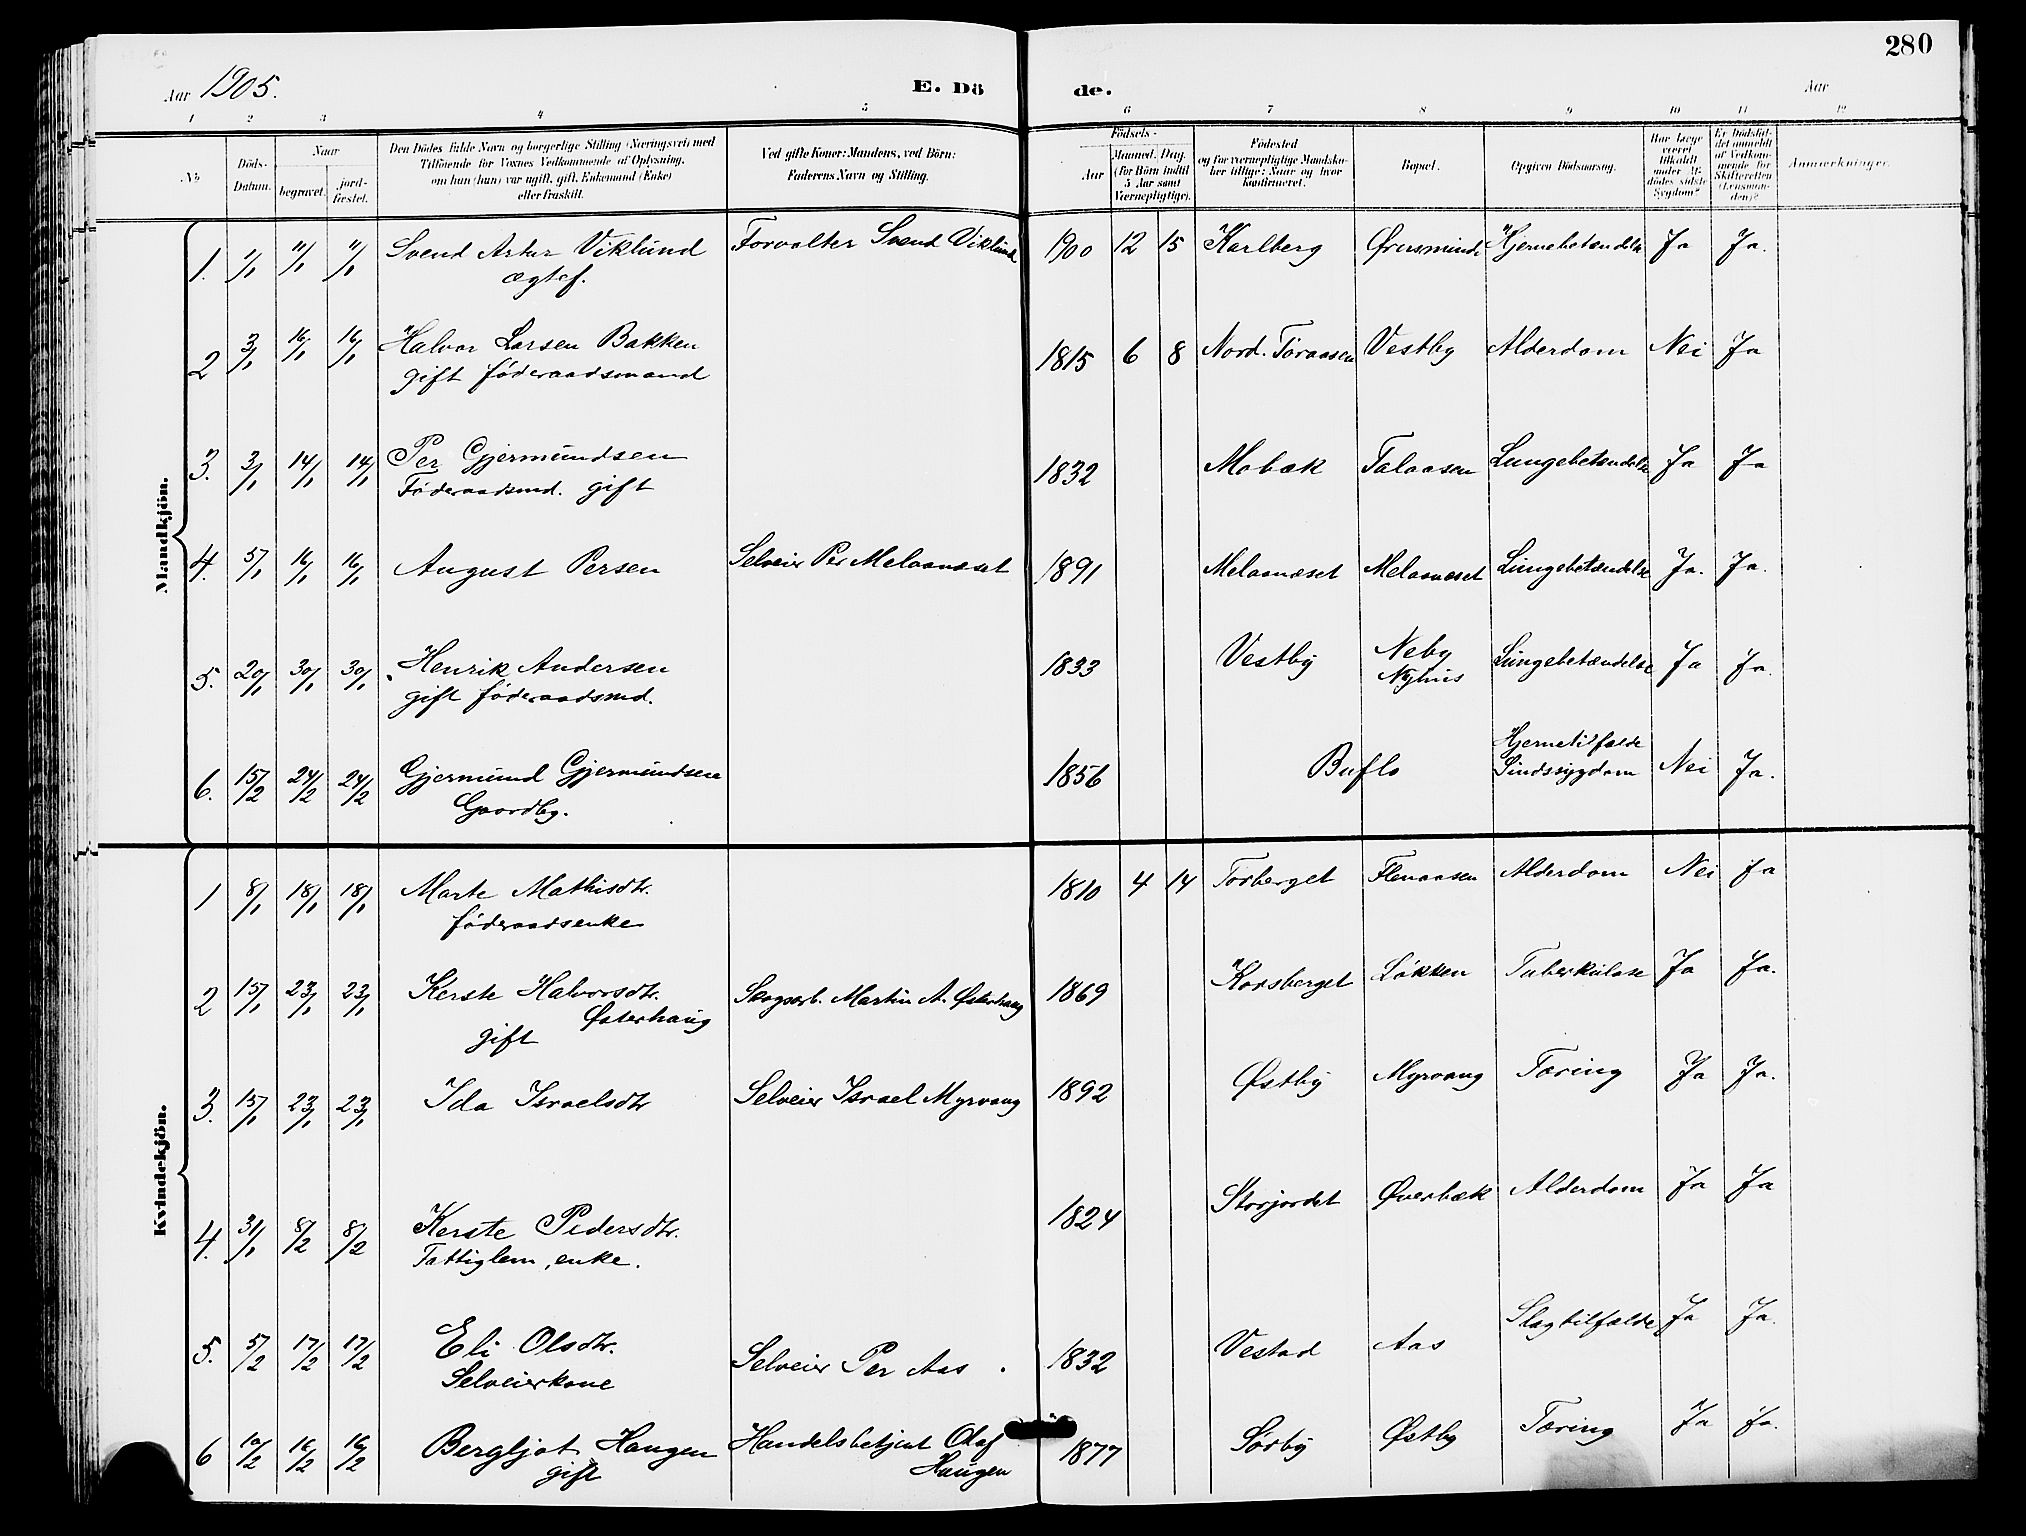 280
Aar 1905.
E. Dö de.
Aar
1 2 3 4 5 6 7 8 9 10 11 12
No.
Döds-Datum.
Naar
begravet.
jord-fæstet.
Den Dödes fulde Navn og borgerlige Stilling (Næringsvei) med
Tilföiende for Voxnes Vedkommende af Oplysning,
om han (hun) var ugift, gift, Enkemand (Enke)
eller fraskilt.
Ved gifte Koner: Mandens, ved Börn:
Faderens Navn og Stilling.
Födsels-
Aar
Maaned. Dag.
(for Börn indtil
5 Aar samt
Værnepligtige).
Födested
og for værnepligtige Mandsku-
ber tillige: Naar og hvor
konfirmeret.
Bopæl.
Opgiven Dödsaarsag.
Har Læge
været
tilkaldt
under Af-
dödes sidste
Sygdom?
Er Dödsfal-
det anmeldt
af Vedkom-
mende for
Skifteretten
(Lensman-
den)?
Anmærkninger.
Mandkjön.
1. 1/1 11/1 11/1 Svend Artur Viklund Forvalter Svend Viklund 1900 12 15 Karlberg Hjernebetændelse Ja Ja.
ægtef.
2 3/1 16/1 16/1 Halvor Larsen Bakken 1815 6 8 Nord. Töraasen Vestby Alderdom Nei Ja
gift föderaadsmand
3. 3/1 14/1 14/1 Per Gjermundsen 1832 Mobæk Talaasen Lungebetændelse Ja Ja
Föderaadsmd. gift
4. 5/1 16/1 16/1 August Persen Selveier Per Melaanæset 1891 Melaanæset Melaanæset Lungebetændelse Ja. Ja.
5. 20/1 30/1 30/1 Henrik Andersen 1833 Vestby Neby Lungebetændelse Ja Ja.
gift föderaadsmd. Nyhus
6. 15/2 24/2 24/2 Gjermund Gjermundsen 1856 Buflo Hjernetilfælde Nei Ja.
Gaardbg. Sindssygdom
Kvindekjön.
1 8/1 18/1 18/1 Marte Mathisdtr. 1810 4 14 Torberget Flenaasen Alderdom Nei Ja
föderaadsenke
2 15/1 23/1 23/1 Kerste Halvorsdtr. Skogsarb. Martin A. Østerhaug 1869 Korsberget Løkken Tuberkulose Ja Ja.
Østerhaug
gift
3. 15/1 23/1 23/1 Ida Israelsdtr Selveier Israel Myrvang 1892 Østby Myrvang Tæring Ja Ja.
4. 31/1 8/2 8/2 Kerste Pedersdtr. 1824 Storjordet Øverbæk Alderdom Ja Ja
Fattiglem, enke.
5. 5/2 17/2 17/2 Eli Olsdtr. Selveier Per Aas 1832 Vestad Aas Slagtilfælde Ja Ja.
Selveierkone
6 10/2 16/2 16/2 Bergljot Haugen Handelsbetjent Olaf 1877 Sörby Østby Tæring Ja Ja.
gift Haugen